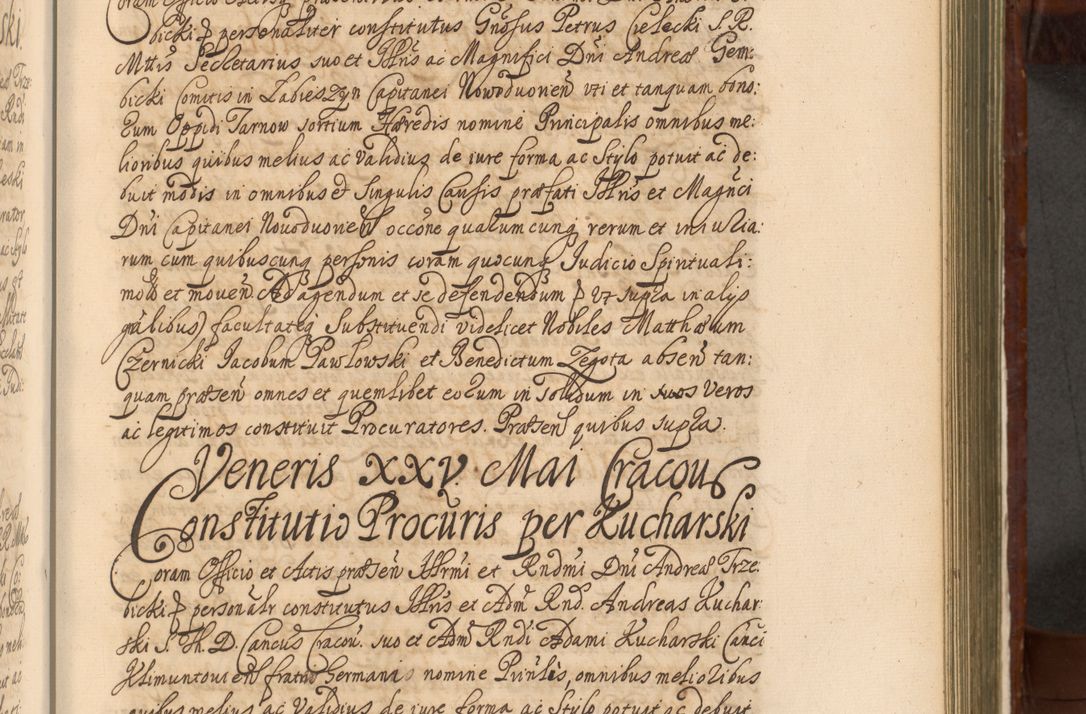 bicki ꝑ personaliter constitutus Gnosus Petrus Cielecki S. R.
Mttis Secretarius suo et Illris ac Magnifici Dni Andreæ Gem-
bicki Comitis in Labieszyn Capitanei Nowodvorien uti et tanquam bono:
Eum Oppidi Tarnow sortium Hæredis nomine Principalis omnibus me:
lioribus quibus melius ac validius de iure forma ac Stylo potuit ac de:
buit modis in omnibus et Singulis Causis præfati Illris et Magnci
Dni Capitanei Novodvorien occone qualumcunq rerum et iniuria:
rum cum quibuscunq personis coram quocunq Judicio Spirituali:
motis et moven Ad agendum et se defendendum ꝑ ut supra in alys
gnalibus) facultateq Substituendi videlicet Nobiles Matthæum
Czernicki Jacobum Pawlowski et Benedictum Zegota absen tan:
quam præsen omnes et quemlibet eorum in solidum in suos veros
ac legitimos constituit Procuratores. Præsen quibus supra.
Veneris XXV Mai Cracov
Constitutio Procuris per Kucharski
Coram Officio et Actis præsen Illrmi et Rndmi Dni Andreæ Trze
bicki ꝑ personalr constitutus Illris et Adm Rnd. Andreas Kuchar:
ski S. Th. D. Cancus Cracov. suo et Adm Rndi Adami Kucharski Canci
Klimuntovien fratris Germani nomine Prinlis, omnibus melioribus
quibus melius ac validius de iure forma ac Stylo potuit ac debuit